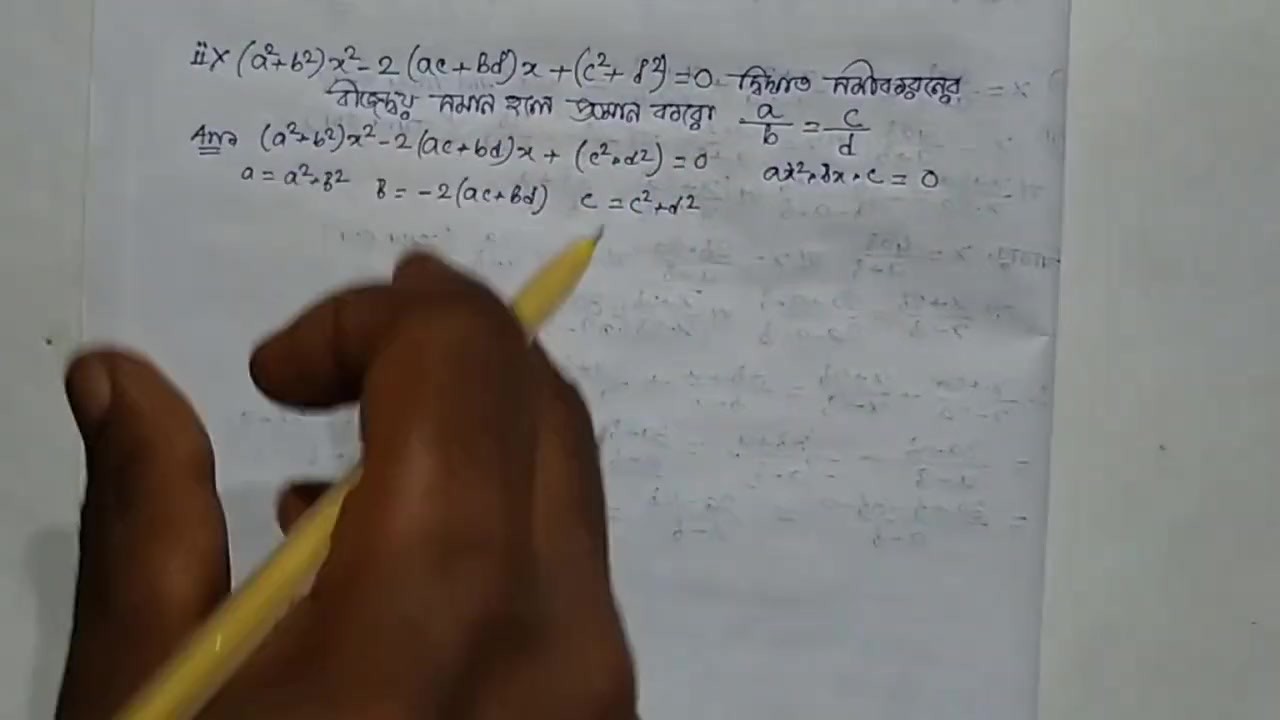 ii) (a²+b²)x² - 2(ac+Bd)x + (c²+d²) = 0 দ্বিঘাত সমীকরণের
বীজদ্বয় সমান হলে প্রমাণ করো a/b = c/d
Ans (a²+b²)x² - 2(ac+bd)x + (c²+d²) = 0 ax²+Bx+c = 0
a = a²+B² B = -2(ac+Bd) c = c²+d²